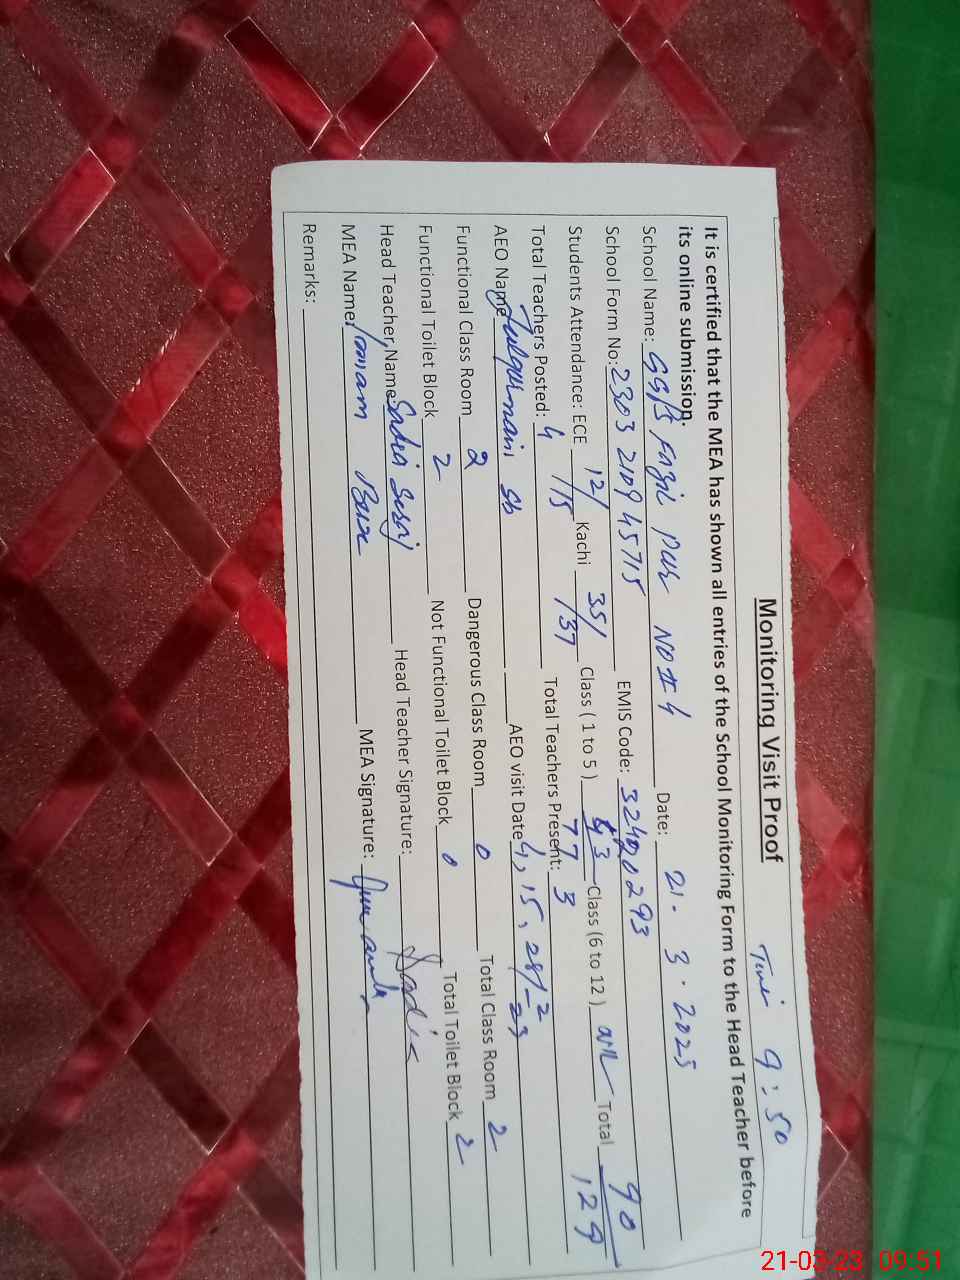 Time 9:50
Monitoring Visit Proof
It is certified that the MEA has shown all entries of the School Monitoring Form to the Head Teacher before
its online submission.
School Name: GGPS Fazil Pur NO#4 Date: 21.3.2023
School Form No: 230321094 5715 EMIS Code: 32420293
Students Attendance: ECE 12/15 Kachi 35/37 Class (1 to 5) 43/77 Class (6 to 12) Total 90/129
Total Teachers Posted: 4 Total Teachers Present: 3
AEO Name sb AEO visit Date 4, 15, 28/2-23
Functional Class Room 2 Dangerous Class Room 0 Total Class Room 2
Functional Toilet Block 2 Not Functional Toilet Block 0 Total Toilet Block 2
Head Teacher Name: Sadia Head Teacher Signature: Sadia
MEA Name: MEA Signature:
Remarks:
21-03-23 09:51